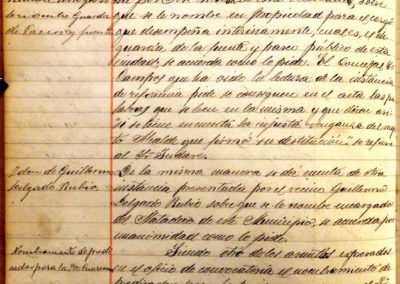 se le nombre Guarda
de Paseos y fuentes
que se le nombre en propiedad para el cargo
que desempeña interinamente, cual es, el de
guarda de la fuente y paseo público de esta
ciudad, se acuerda como lo pide. El Concejal Sr.
Campos que ha oido la lectura de la instancia
de referencia pide se consignen en el acta las pala-
bras que se leen en la misma y que dicen así
si se tiene en cuenta la injusta venganza del
Alcalde que firmó su destitución" se refiere
al Sr.
Idem de Guillermo
Delgado Rubio
De la misma manera se dá cuenta de otra
instancia presentada por el vecino Guillermo
Delgado Rubio sobre que se le nombre encargado
del Matadero de este Municipio, se acuerda por
unanimidad como lo pide.
Nombramiento de predi-
cador para la Sta Cuaresma
Siendo otro de los asuntos expresados
en el oficio de convocatoria el nombramiento de